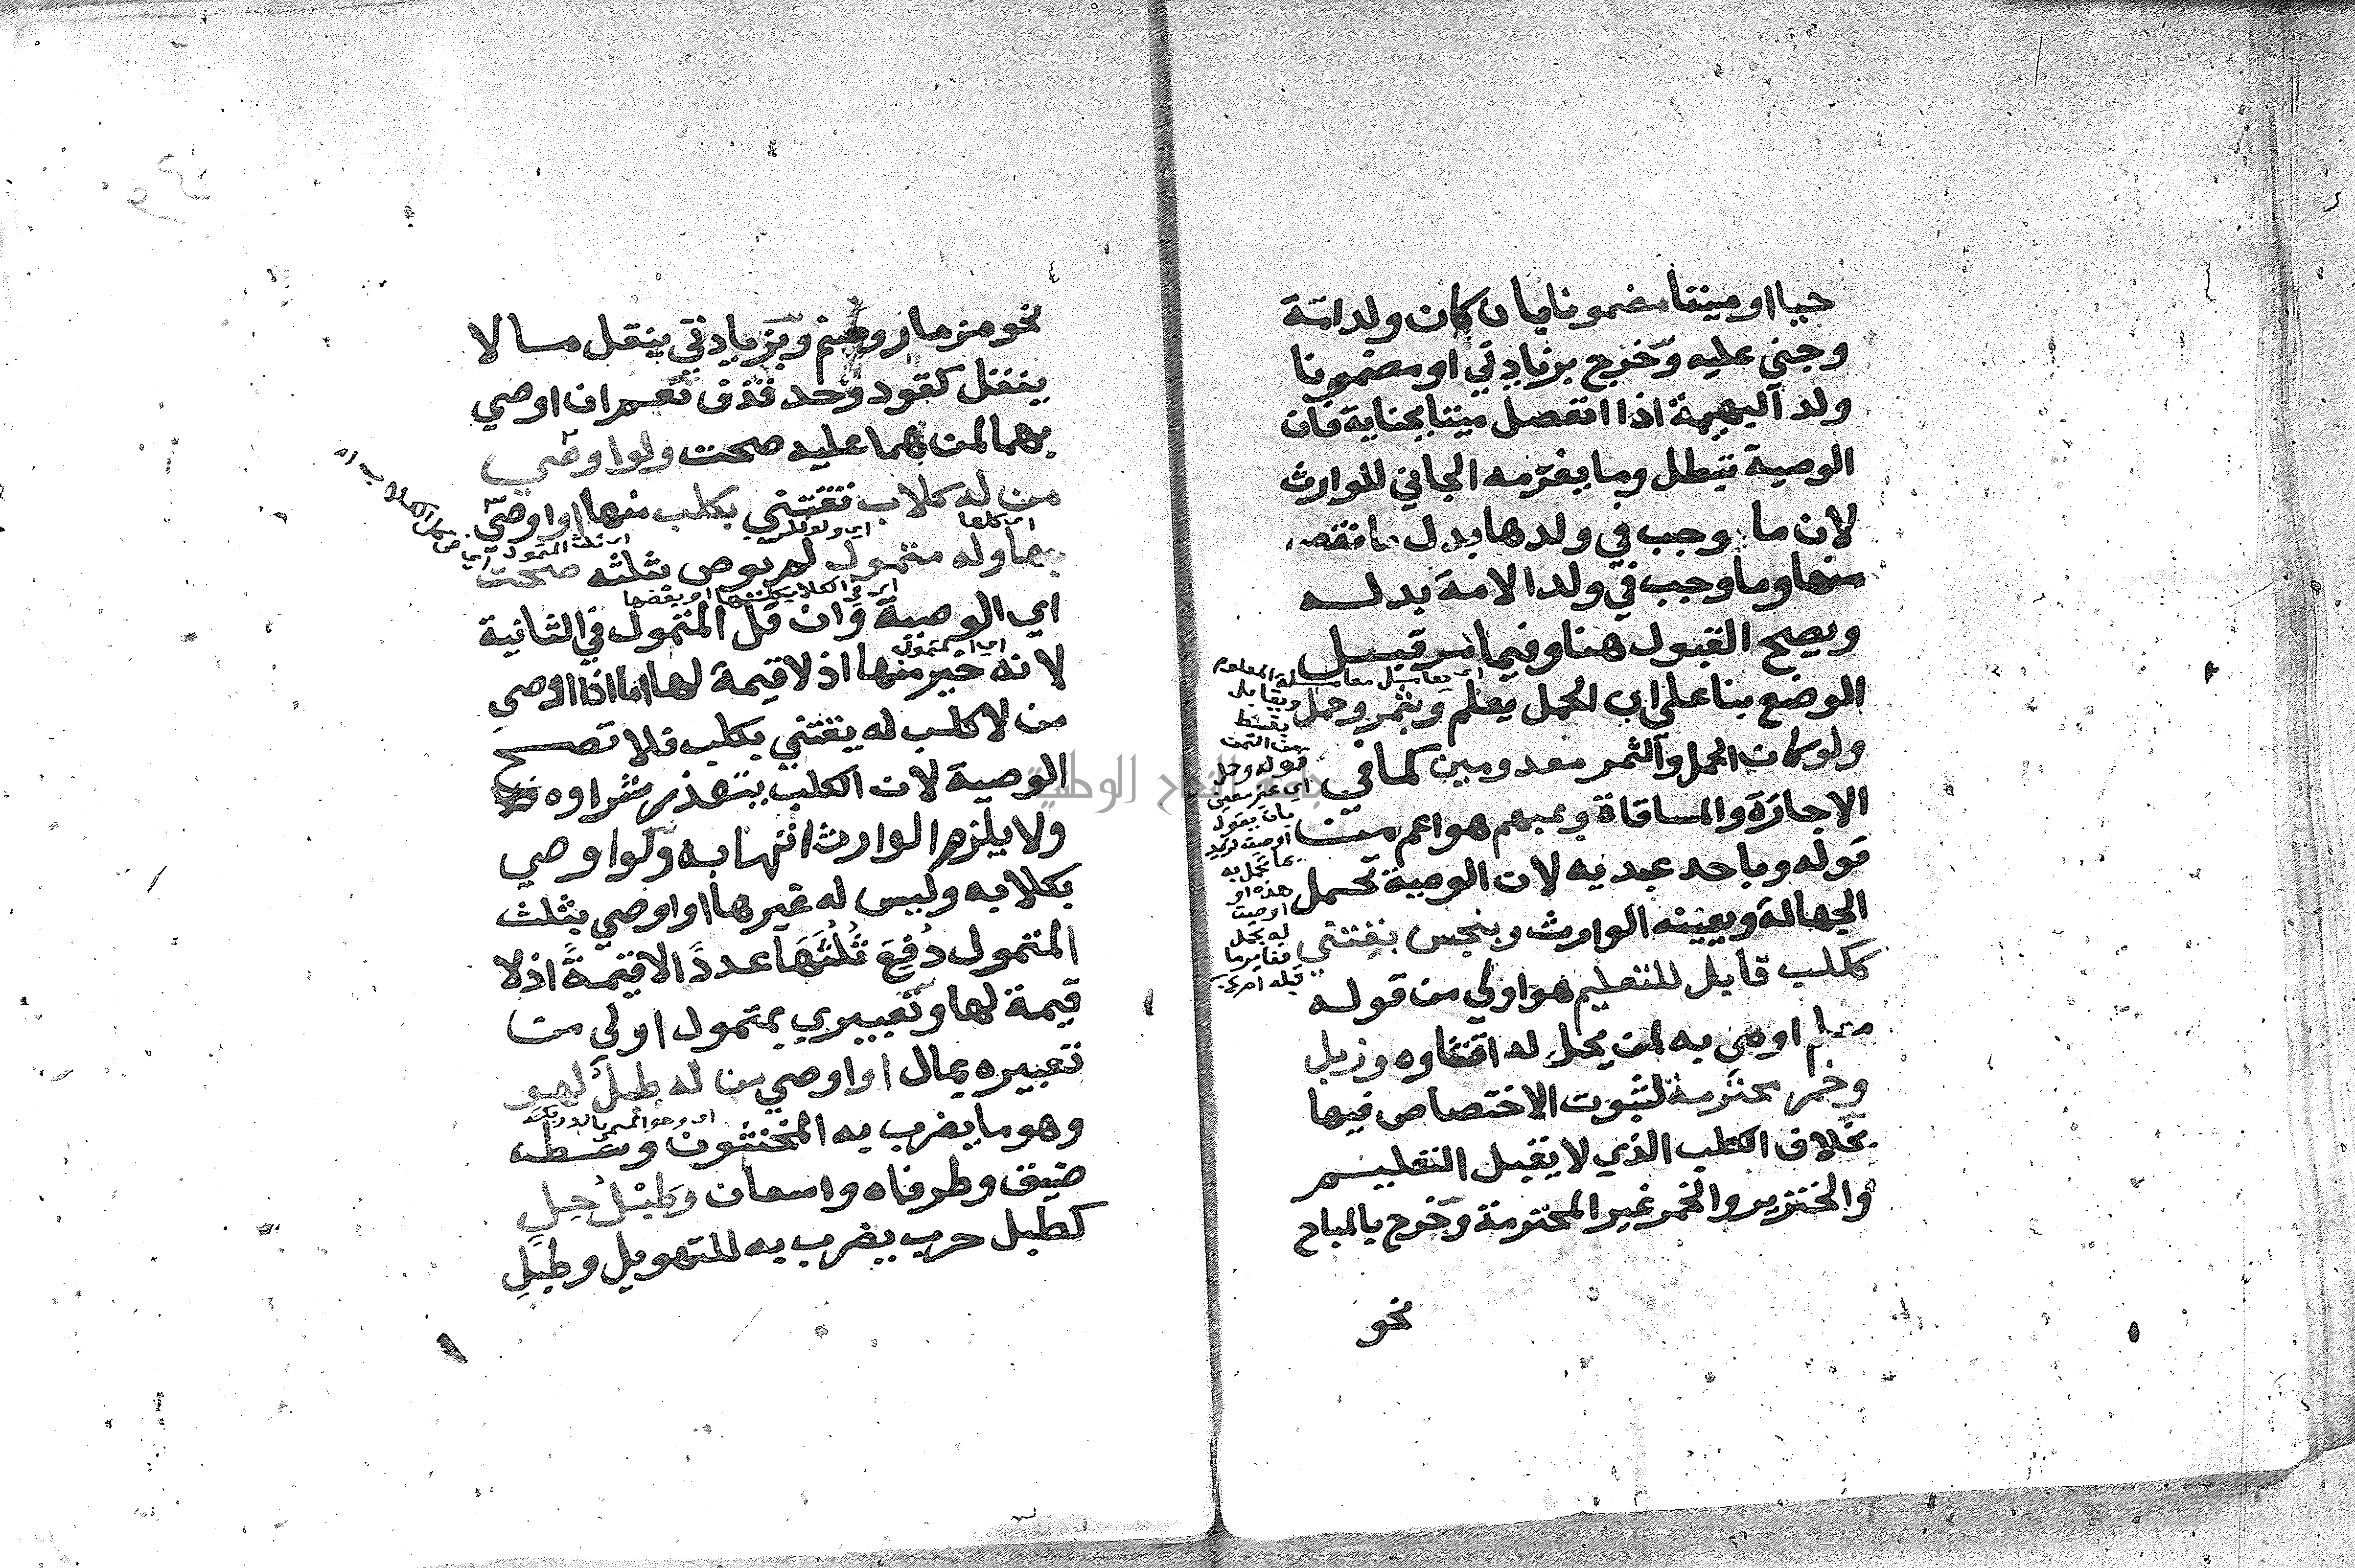 حيا او ميتا مضمونا بان كان ولد امة
وجني عليه وخرج بزيادتي او مضمونا
ولد البهيمة اذا انفصل ميتا بجناية فان
الوصية تبطل وما يغرمه الجاني للوارث
لان ما وجب في ولدها بدل ما نقص
منها وما وجب في ولد الامة بدله
ويصح القبول هنا وفيما مر قبل
الوضع بنا على ان الحمل يعلم وبثمر وحمل
ولو كان الحمل والثمر معدومين كما في
الاجارة والمساقاة وبمبهم هو اعم من
قوله وباحد عبديه لان الوصية تحتمل
الجهالة ويعينه الوارث وبنجس يقتني
ككلب قابل للتعليم هو اولى من قوله
معلم اوصي به لمن يحل له اقتناوه وزبل
وخمر محترمة لثبوت الاختصاص فيها
بخلاف الكلب الذي لا يقبل التعليم
والخنزير والخمر غير المحترمة وخرج بالمباح
نحو
اي يعامل معاملة المعلوم
ويقابل
بقسط
من الثمن
قوله وحمل
اي غير معين
بان يقول
اوصيت لزيد
بما تحمل به
هذه او
اوصيت
له بحمل
فغاير ما
قبله
جامعة النجاح الوطنية
نحو مزمار وصنم وبزيادتي ينقل ما لا
ينتقل كقود وحد قذف نعم ان اوصي
بهما لمن هما عليه صحت ولو اوصى
من له كلاب تقتني بكلب منها او اوصى
اي كلها
بها وله متمول لم يوص بثلثه صحت
اي الوصية وان قل المتمول في الثانية
اي المتمول
لانه خير منها اذ لا قيمة لها اما اذا اوصي
من لا كلب له يقتني بكلب فلا تصح
الوصية لان الكلب يتعذر شراوه
ولا يلزم الوارث اتهابه ولو اوصي
بكلابه وليس له غيرها او اوصي بثلث
المتمول دُفِعَ ثُلُثُهَا عددًا لا قيمةً اذ لا
قيمة لها وتعبيري بمتمول اولى من
تعبيره بمال او اوصي من له طبل لهو
وهو ما يضرب به المخنثون وسطه
ضيق وطرفاه واسعان وطبل حل
كطبل حرب يضرب به للتهويل وطبل